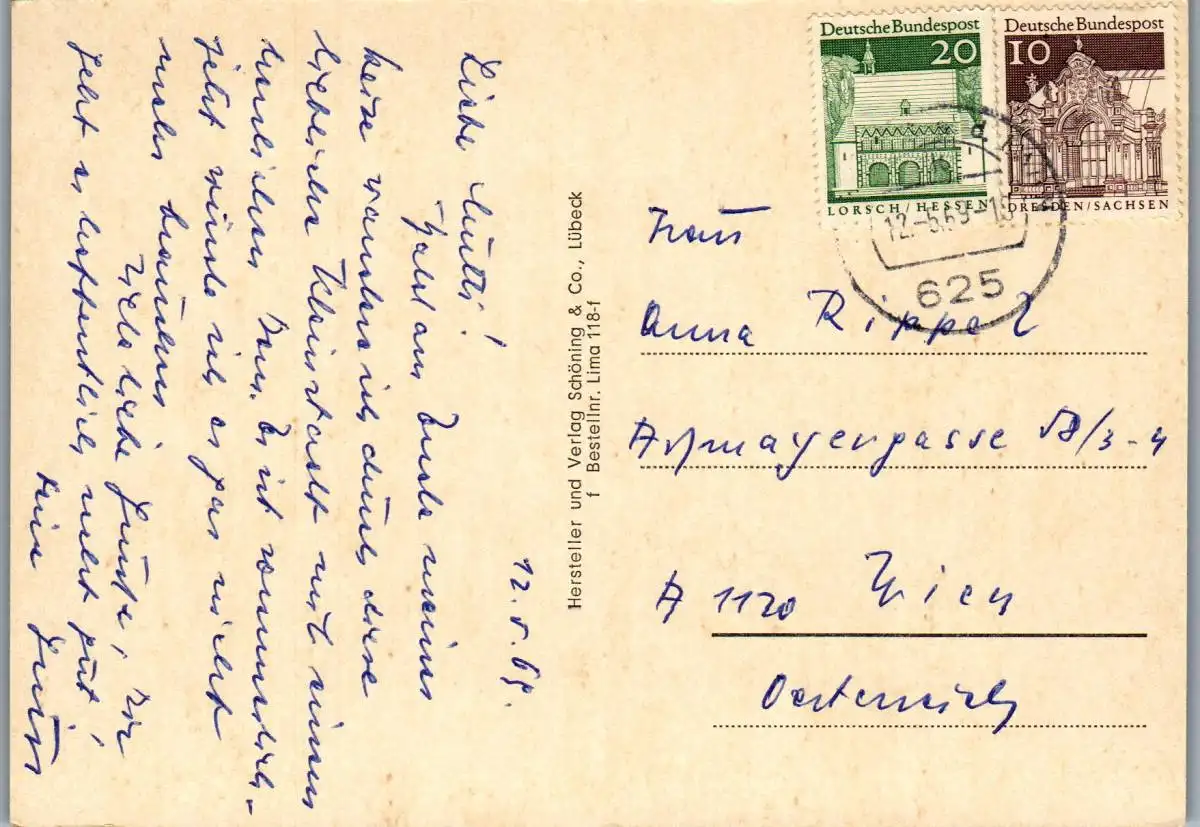 12.5.69.
Liebe Mutti!
Bald am Ende meiner
Reise wandere ich durch diese
liebliche Kleinstadt mit einem
herrlichen Dom. Es ist sommerlich-
jetzt würde ich es gar nicht
mehr brauchen
Viele liebe Grüße, Dir
geht es hoffentlich recht gut!
Deine
Hersteller und Verlag Schöning & Co., Lübeck
f Bestellnr. Lima 118-f
Deutsche Bundespost
20
LORSCH/HESSEN
Deutsche Bundespost
10
DRESDEN/SACHSEN
12.-5.69-18
625
Frau
Anna Rippel
Aßmayergasse 58/3-4
A 1120 Wien
Oesterreich